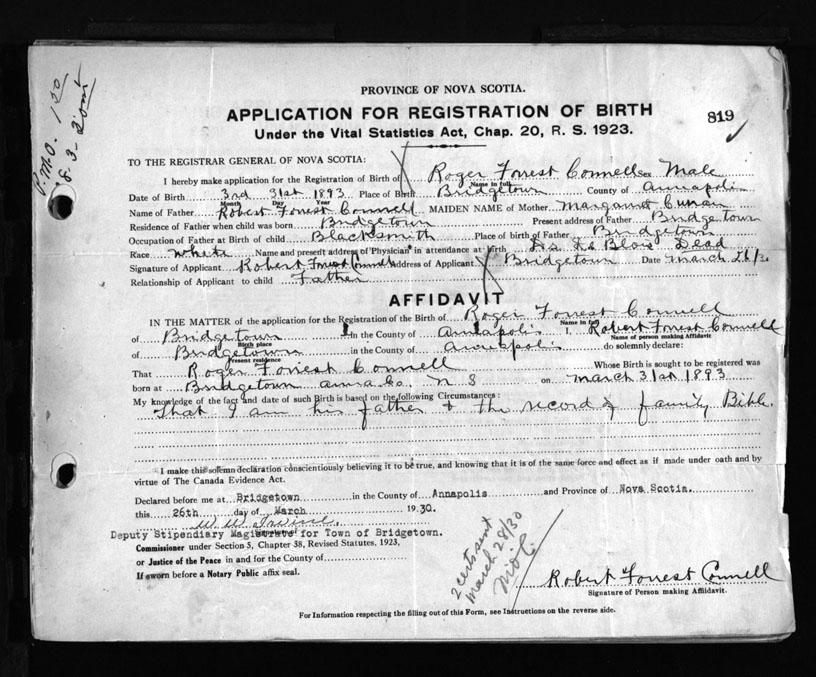 P.M.O. 1.50
PROVINCE OF NOVA SCOTIA.
APPLICATION FOR REGISTRATION OF BIRTH
819
Under the Vital Statistics Act, Chap. 20, R. S. 1923.
TO THE REGISTRAR GENERAL OF NOVA SCOTIA:
I hereby make application for the Registration of Birth of Roger Forrest Connell Sex Male
Name in full
Date of Birth 3rd 31st 1893 Place of Birth Bridgetown County of Annapolis
Month Day Year
Name of Father Robert Forrest Connell MAIDEN NAME of Mother Margaret
Residence of Father when child was born Bridgetown Present address of Father Bridgetown
Occupation of Father at Birth of child Blacksmith Place of birth of Father Bridgetown
Race White Name and present address of Physician in attendance at Birth Dr. De Blois Dead
Signature of Applicant Robert Forrest Connell Address of Applicant Bridgetown Date March 26/30
Relationship of Applicant to child Father
AFFIDAVIT
IN THE MATTER of the application for the Registration of the Birth of Roger Forrest Connell
Name in full
of Bridgetown in the County of Annapolis I, Robert Forrest Connell
Birth place Name of person making Affidavit
of Bridgetown in the County of Annapolis do solemnly declare:
Present residence
That Roger Forrest Connell Whose Birth is sought to be registered was
born at Bridgetown Anna Co. N S on March 31st 1893
My knowledge of the fact and date of such Birth is based on the following Circumstances:
That I am his father & the record of family Bible.
I make this solemn declaration conscientiously believing it to be true, and knowing that it is of the same force and effect as if made under oath and by
virtue of The Canada Evidence Act.
Declared before me at Bridgetown in the County of Annapolis and Province of Nova Scotia.
this 26th day of March 1930.
W. W. Irvine.
Deputy Stipendiary Magistrate for Town of Bridgetown.
Commissioner under Section 5, Chapter 38, Revised Statutes, 1923,
or Justice of the Peace in and for the County of
If sworn before a Notary Public affix seal.
2 certs sent
March 28/30
Robert Forrest Connell
Signature of Person making Affidavit.
For Information respecting the filling out of this Form, see Instructions on the reverse side.